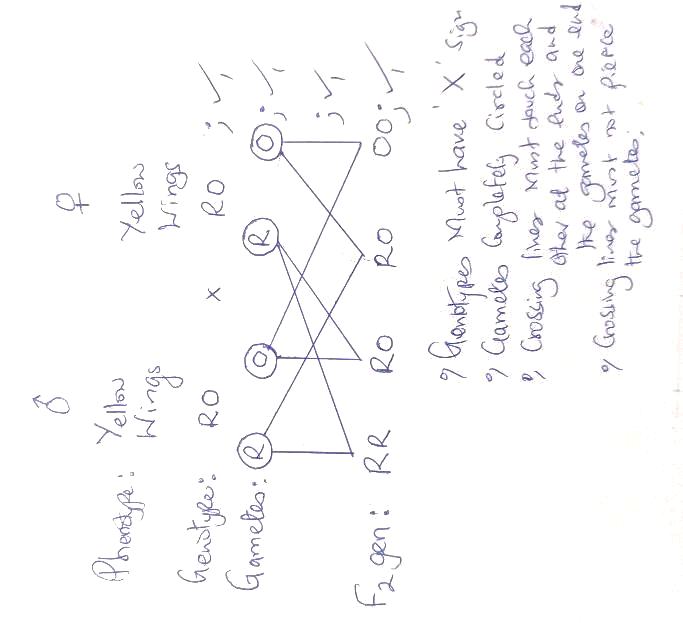 ♂ ♀
Phenotype: Yellow Yellow
Wings Wings
Genotype: RO x RO ; ✓1
Gametes: R O R O ; ✓1
; ✓1
F2 gen: RR RO RO OO ; ✓1
Genotypes Must have 'X' Sign
Gametes Completely Circled
Crossing lines Must touch each
other at the ends and
the gametes on one end
Crossing lines must not pierce
the gametes.